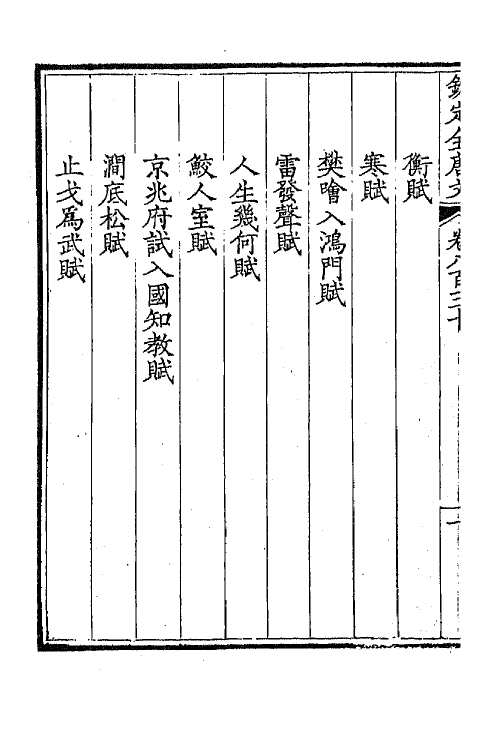 欽定全唐文 卷八百三十 一
衡賦
寒賦
樊噲入鴻門賦
雷發聲賦
人生幾何賦
鮫人室賦
京兆府試入國知教賦
澗底松賦
止戈爲武賦